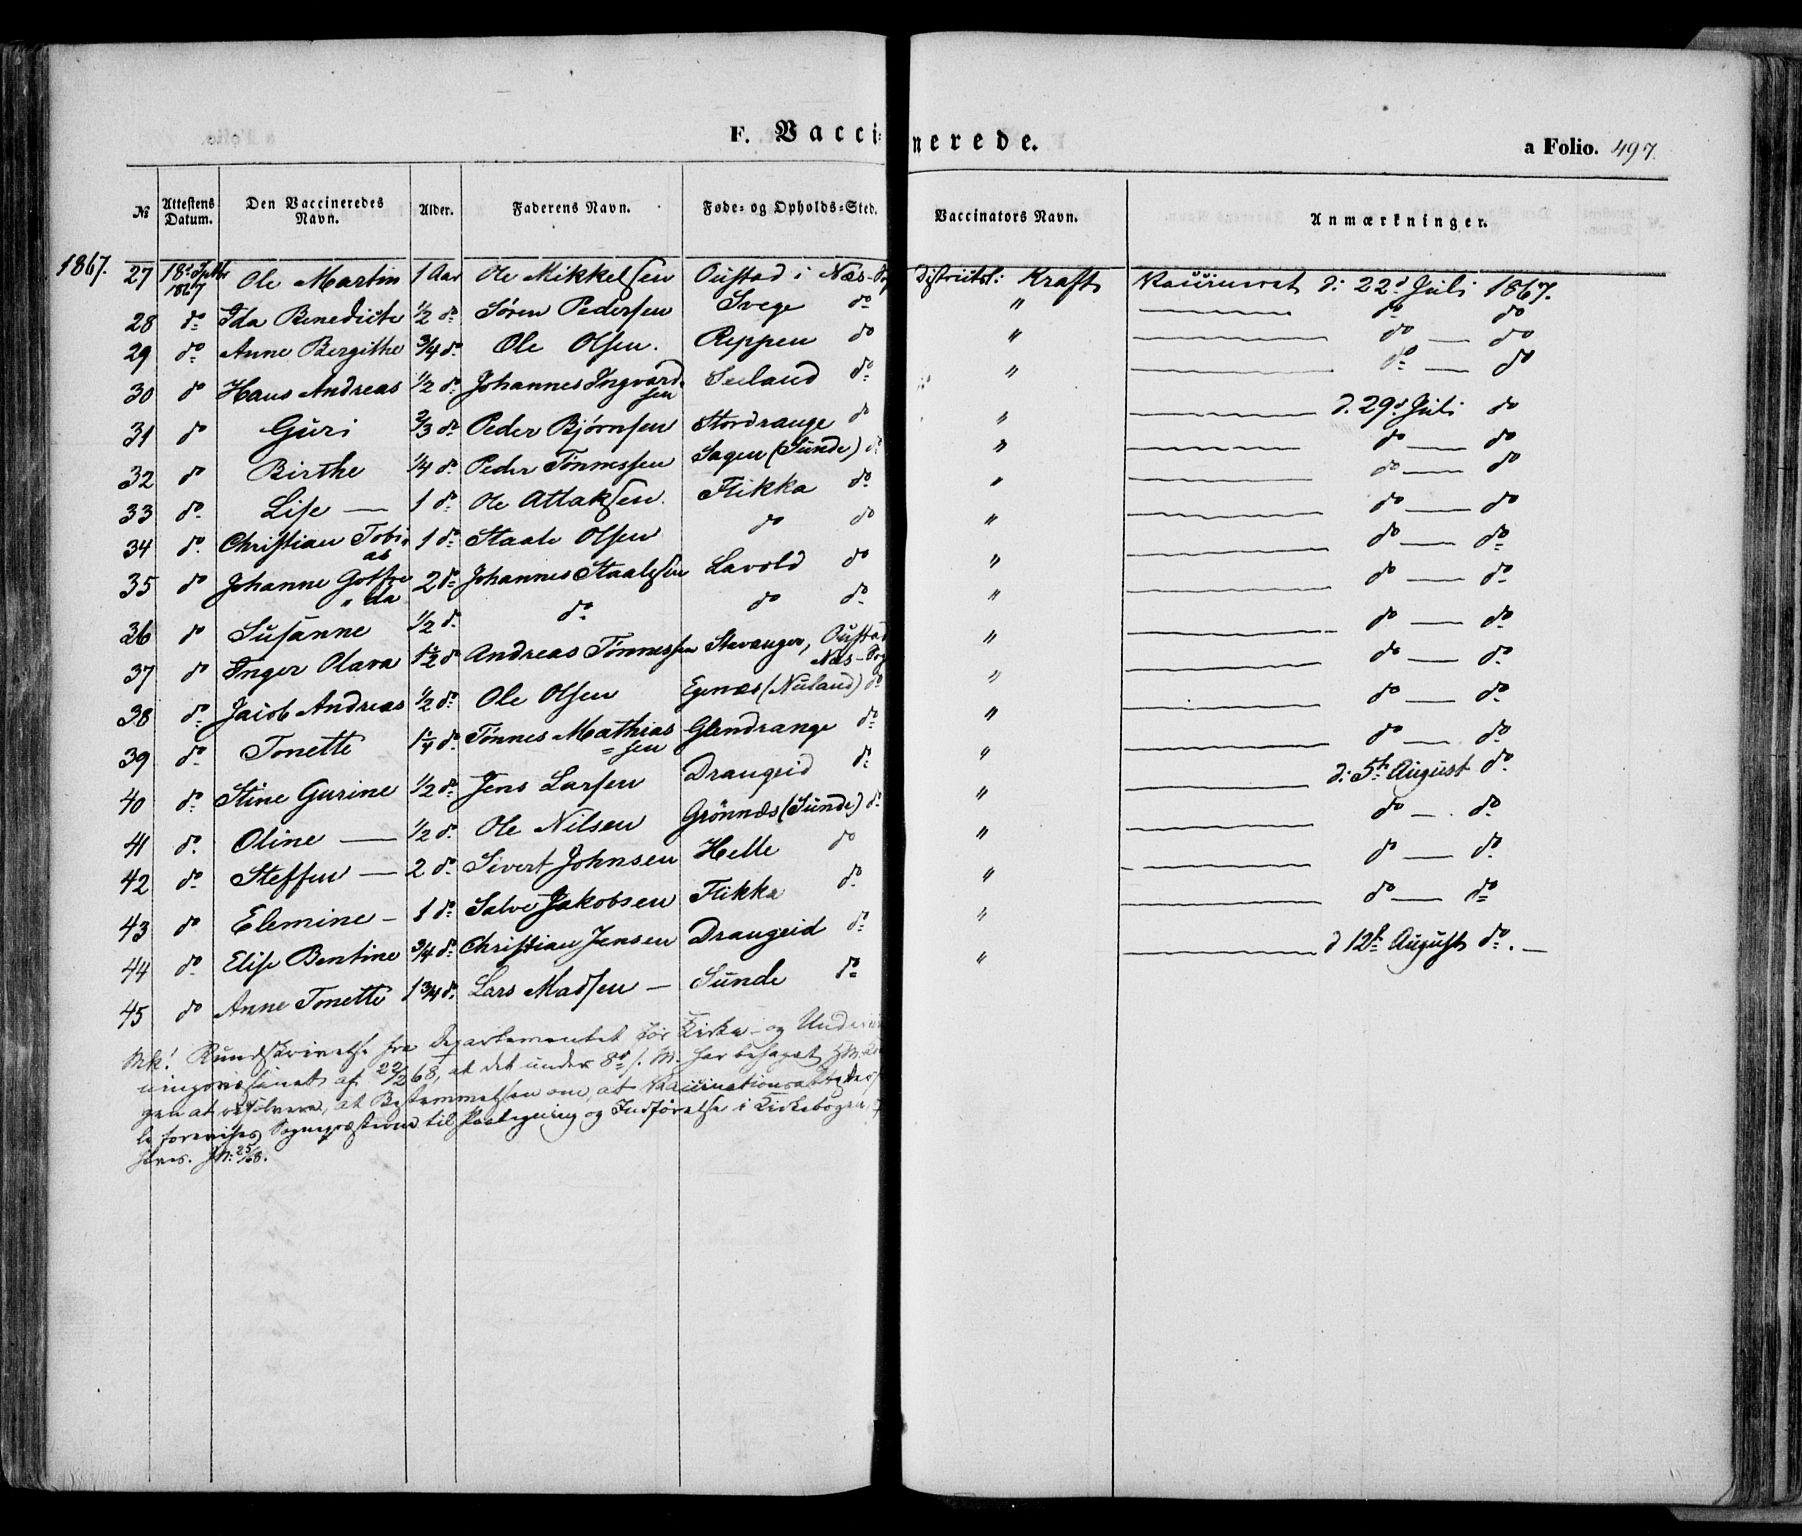 F. Vaccinerede.
a Folio. 497.
№ Attestens Datum. Den Vaccineredes Navn. Alder. Faderens Navn. Føde- og Opholds-Sted. Vaccinators Navn. Anmærkninger.
1867. 27 18d Septbr 1867 Ole Martin 1 Aar Ole Mikkelsen Oustad i Næs-Sog Districtsl: Kraft Vaccineret d: 22d Juli 1867.
28 do Ida Benedicte 1/2 do Søren Pedersen Svege do " do do
29 do Anne Bergithe 3/4 do Ole Olsen. Reppen do " do do
30 do Hans Andreas 1/2 do Johannes Ingvardsen Seeland do " do do
31 do Guri 2/3 do Peder Bjørnsen Stordrange do " d. 29d Juli do
32 do Birthe 1/4 do Peder Tønnessen Sagen (Sunde) do " do do
33 do Lise 1 do Ole Atlaksen. Flikka do " do do
34 do Christian Tobias 1 do Staale Olsen do do " do do
35 do Johanne Gotfreda 2 do Johannes Staalesen Lavold do " do do
36 do Susanne 1/2 do do do do " do do
37 do Inger Olava 1 1/2 do Andreas Tønnessen Stavanger, Oustad Næs-Sog " do do
38 do Jacob Andreas 1/2 do Ole Olsen Egenæs (Nuland) do " do do
39 do Tonette 1 1/4 do Tønnes Mathiassen Glendrange do " do do
40 do Stine Gurine 1/2 do Jens Larsen Drangeid do " do do
41 do Oline 1/2 do Ole Nilsen Grönnæs (Sunde) do " d: 5te August do
42 do Steffen 2 do Sivert Johnsen Helle do " do do
43 do Elemine 1 do Salve Jakobsen Flikka do " do do
44 do Elise Bentine 3/4 do Christian Jensen Drangeid do " do do
45 do Anne Tonette 1 3/4 do Lars Madsen Sunde do " d 12te August do.
Mk! Rundskrivelse fra Departementet for Kirke- og Underviis
ningsvæsenet af 22/2 68, at det under 8de s. M. har behaget H. M. Kon
gen at resolvere, at Bestemmelsen om, at Vaccinationsattester
forevises Sognepræsterne til Paategning og Indførelse i Kirkebogen,